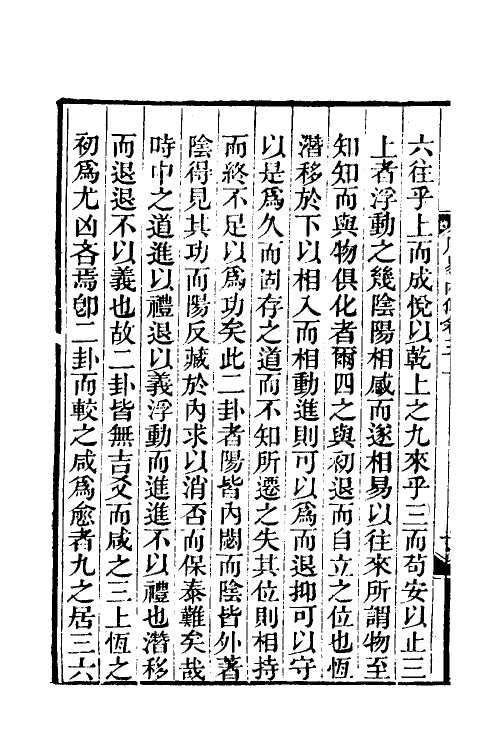 六往乎上而成悅以乾上之九來乎三而苟安以止三
上者浮動之幾陰陽相感而遂相易以往來所謂物至
知知而與物俱化者爾四之與初退而自立之位也恆
潛移於下以相入而相動進則可以爲而退抑可以守
以是爲久而固存之道而不知所遷之失其位則相持
而終不足以爲功矣此二卦者陽皆內閟而陰皆外著
陰得見其功而陽反藏於內求以消否而保泰難矣哉
時中之道進以禮退以義浮動而進進不以禮也潛移
而退退不以義也故二卦皆無吉爻而咸之三上恆之
初爲尤凶吝焉卽二卦而較之咸爲愈者九之居三六